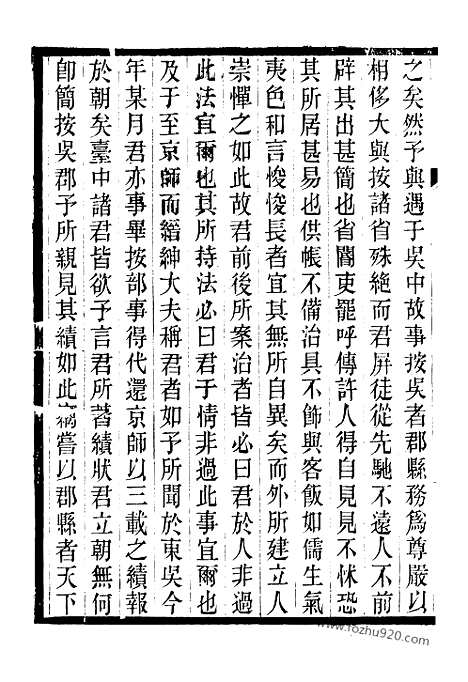 之矣然予與遇于吳中故事按吳者郡縣務爲尊嚴以
相侈大與按諸省殊絶而君屏徒從先馳不遠人不前
辟其出甚簡也省閽吏罷呼傳許人得自見見不怵恐
其所居甚易也供帳不備治具不飾與客飯如儒生氣
夷色和言悛悛長者宜其無所自異矣而外所建立人
崇憚之如此故君前後所案治者皆必曰君於人非過
此法宜爾也其所持法必曰君于情非過此事宜爾也
及于至京師而縉紳大夫稱君者如予所聞於東吳今
年某月君亦事畢按部事得代還京師以三載之績報
於朝矣臺中諸君皆欲予言君所著績狀君立朝無何
卽簡按吳郡予所親見其績如此竊嘗以郡縣者天下
www.fozhu920.com